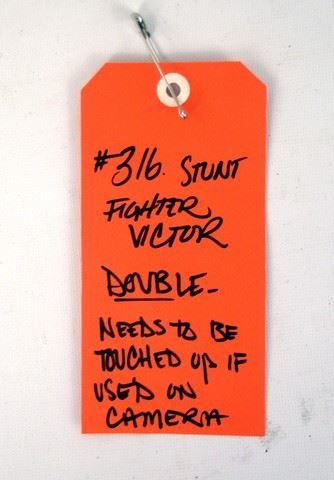 #316. STUNT
FIGHTER
VICTOR
DOUBLE-
NEEDS TO BE
TOUCHED UP IF
USED ON
CAMERA